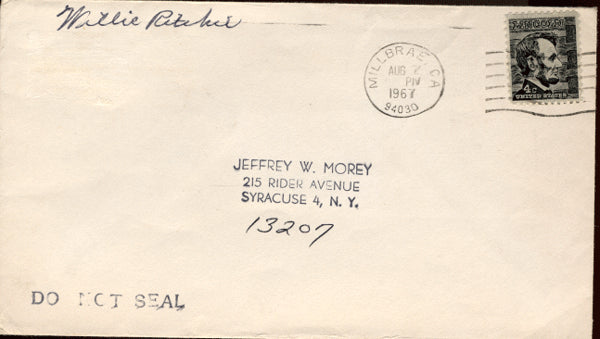 Willie Ritchie
MILLBRAE, CA
AUG 7
PM
1967
94030
LINCOLN
4c
UNITED STATES
JEFFREY W. MOREY
215 RIDER AVENUE
SYRACUSE 4, N. Y.
13207
DO NOT SEAL